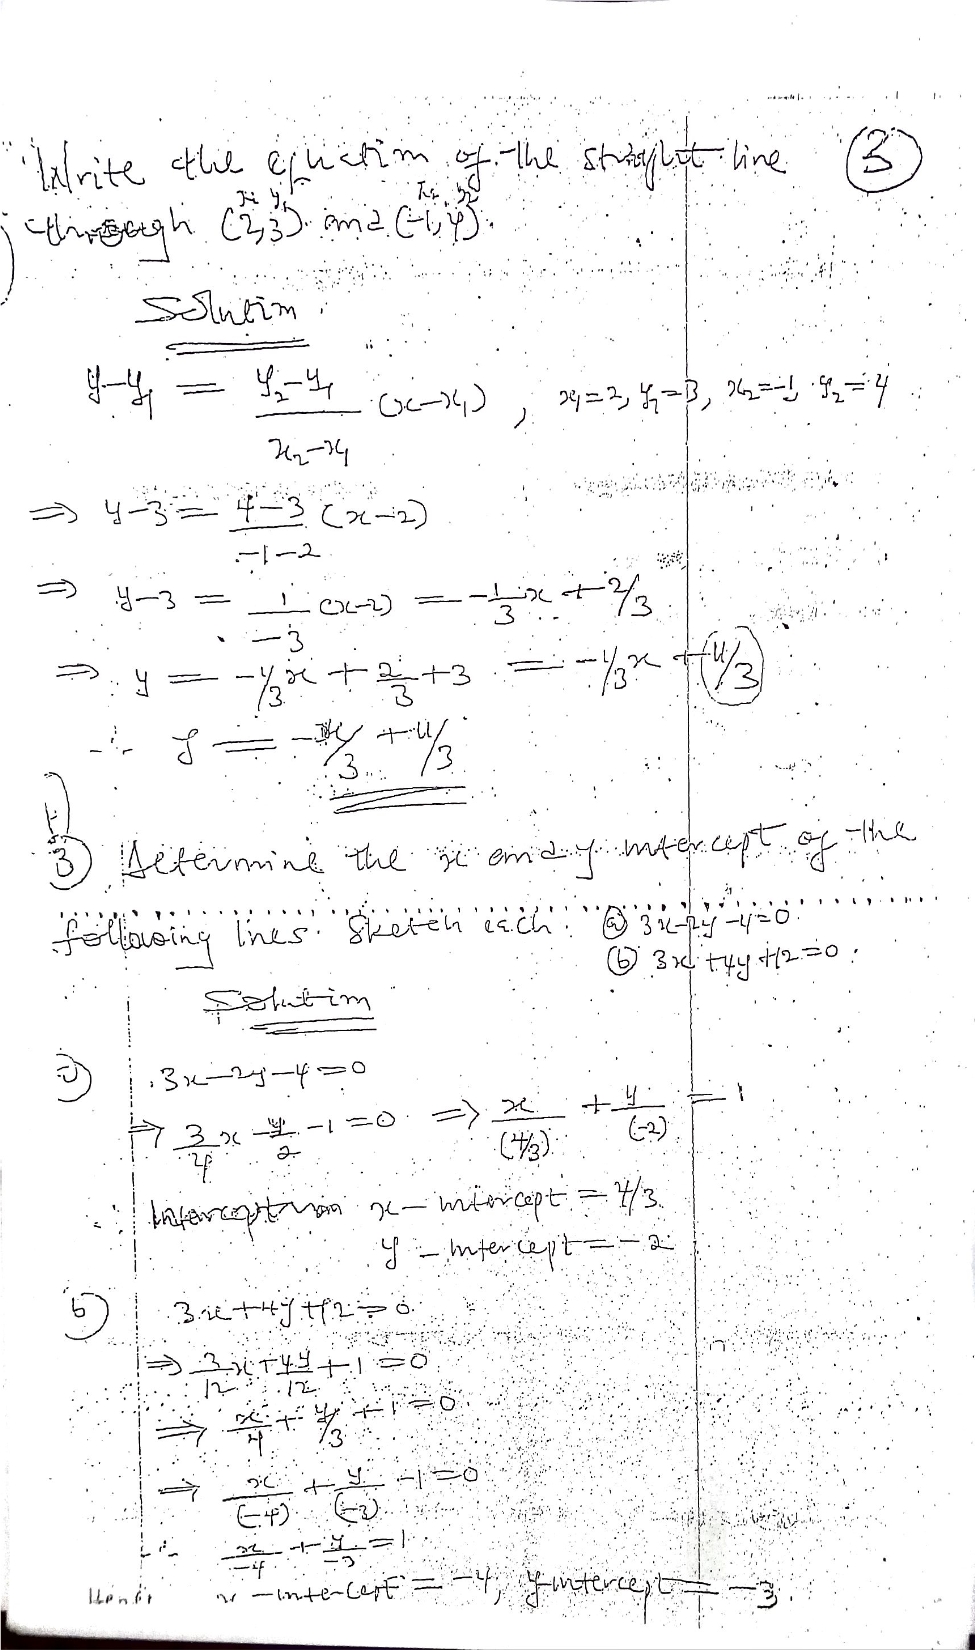 Write the equation of the straight line ③
through (2,3) and (-1,4).
x₁ y₁ x₂ y₂
Solution
y-y₁ = (y₂-y₁)/(x₂-x₁) (x-x₁), x₁=2, y₁=3, x₂=-1, y₂=4
⇒ y-3 = (4-3)/(-1-2) (x-2)
⇒ y-3 = 1/-3 (x-2) = -1/3 x + 2/3
⇒ y = -1/3 x + 2/3 + 3 = -1/3 x + 11/3
∴ y = -x/3 + 11/3
3) Determine the x and y intercept of the
following lines. Sketch each. (a) 3x-2y-4=0
(b) 3x+4y+12=0.
Solution
3x-2y-4=0
⇒ 3/4 x - y/2 - 1=0 ⇒ x/(4/3) + y/(-2) = 1
∴ x-intercept = 4/3
y-intercept = -2
b) 3x+4y+12=0
⇒ 3x/12 + 4y/12 + 1 = 0
⇒ x/4 + y/3 + 1 = 0
⇒ x/(-4) + y/(-3) - 1 = 0
∴ x/-4 + y/-3 = 1
x-intercept = -4, y-intercept = -3.